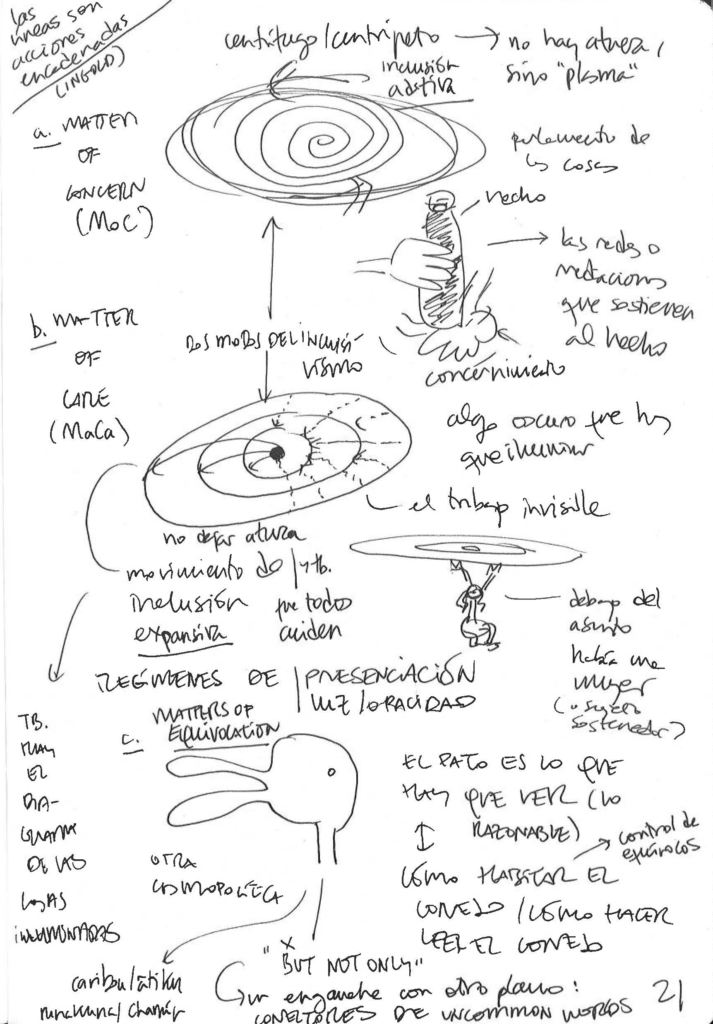 las
líneas son
acciones
encadenadas
(INGOLD)
centrífugo/centrípeto → no hay afuera,
sino "plasma"
inclusión
aditiva
a. MATTER
OF
CONCERN
(MoC)
parlamento de
las cosas
hecho
las redes o
mediaciones
que sostienen
al hecho
concernimiento
b. MATTER
OF
CARE
(MaCa)
DOS MODOS DEL INCLUSI-
VISMO
algo oscuro que hay
que iluminar
el trabajo invisible
no dejar afuera
movimiento de
inclusión
expansiva
y tb.
que todos
cuiden
debajo del
asunto
había una
mujer
(o sujeto
sostenedor)
REGÍMENES DE PRESENCIACIÓN
LUZ/OPACIDAD
c. MATTERS OF
EQUIVOCATION
TB.
HAY
EL
DIA-
GRAMA
DE LAS
COSAS
OTRA
COSMOPOLÍTICA
EL PATO ES LO QUE
HAY QUE VER (LO
RAZONABLE)
control de
equívocos
CÓMO HABITAR EL
CONEJO / CÓMO HACER
LEER EL CONEJO
"X
BUT NOT ONLY"
un enganche con otro plano:
CONECTORES DE UNCOMMON WORLDS
21